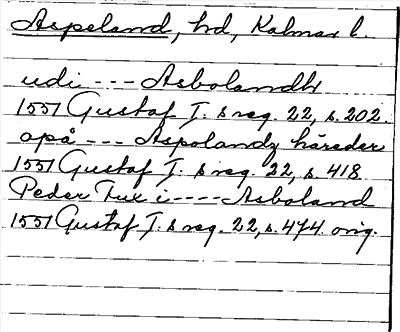 Aspeland, hd, Kalmar l.
udi --- Asbolandh
1551 Gustaf I:s reg. 22, s. 202.
opå --- Aspolandz häreder
1551 Gustaf I:s reg. 22, s. 418.
Peder Tux i ---- Asboland
1551 Gustaf I:s reg. 22, s. 474. orig.